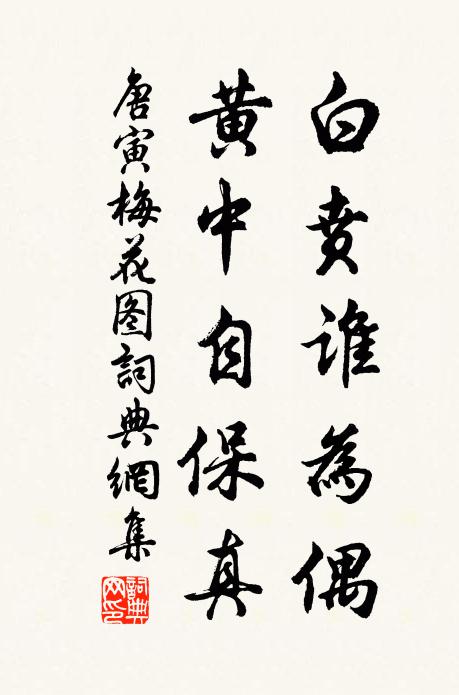 白賁誰為偶
黃中自保真
唐寅梅花图詞典網集
詞典网印